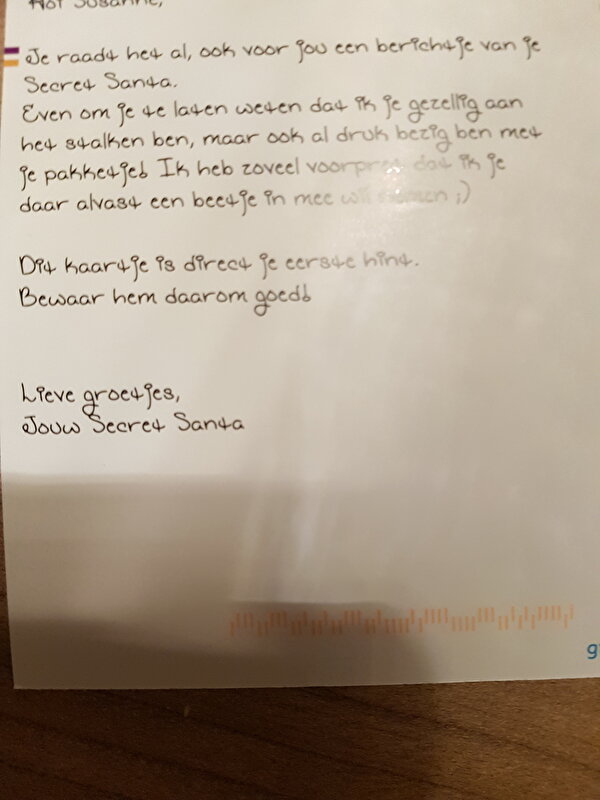 Hoi Susanne,
Je raadt het al, ook voor jou een berichtje van je
Secret Santa.
Even om je te laten weten dat ik je gezellig aan
het stalken ben, maar ook al druk bezig ben met
je pakketje! Ik heb zoveel voorpret dat ik je
daar alvast een beetje in mee wil nemen ;)
Dit kaartje is direct je eerste hint.
Bewaar hem daarom goed!
Lieve groetjes,
Jouw Secret Santa